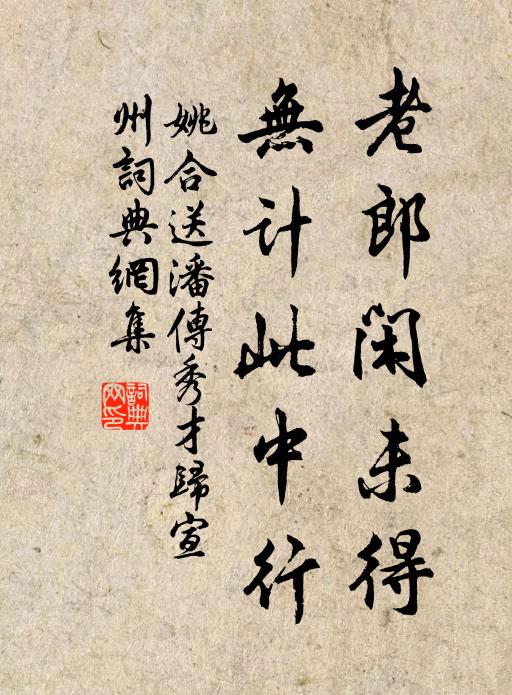 老郎閑未得
無計此中行
姚合送潘傳秀才歸宣
州詞典網集
詞典網印